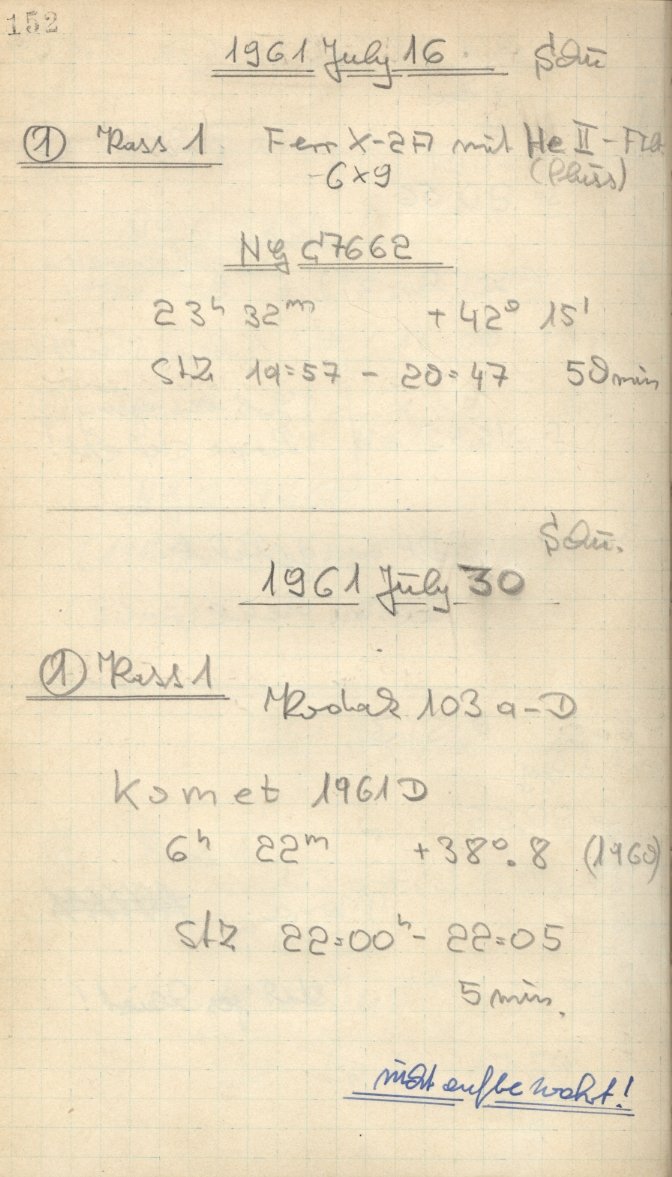 152
1961 July 16 Schü
① Kass 1 Ferr X-2A mit He II-
6x9 (Plüss)
NGC 7662
23ʰ 32ᵐ +42° 15'
StZ 19:57 - 20:47 50 min
Schü.
1961 July 30
① Kass 1
Kodak 103 a-D
Komet 1961 D
6ʰ 22ᵐ +38°.8 (1960)
StZ 22:00ʰ - 22:05
5 min.
nicht aufbewahrt!